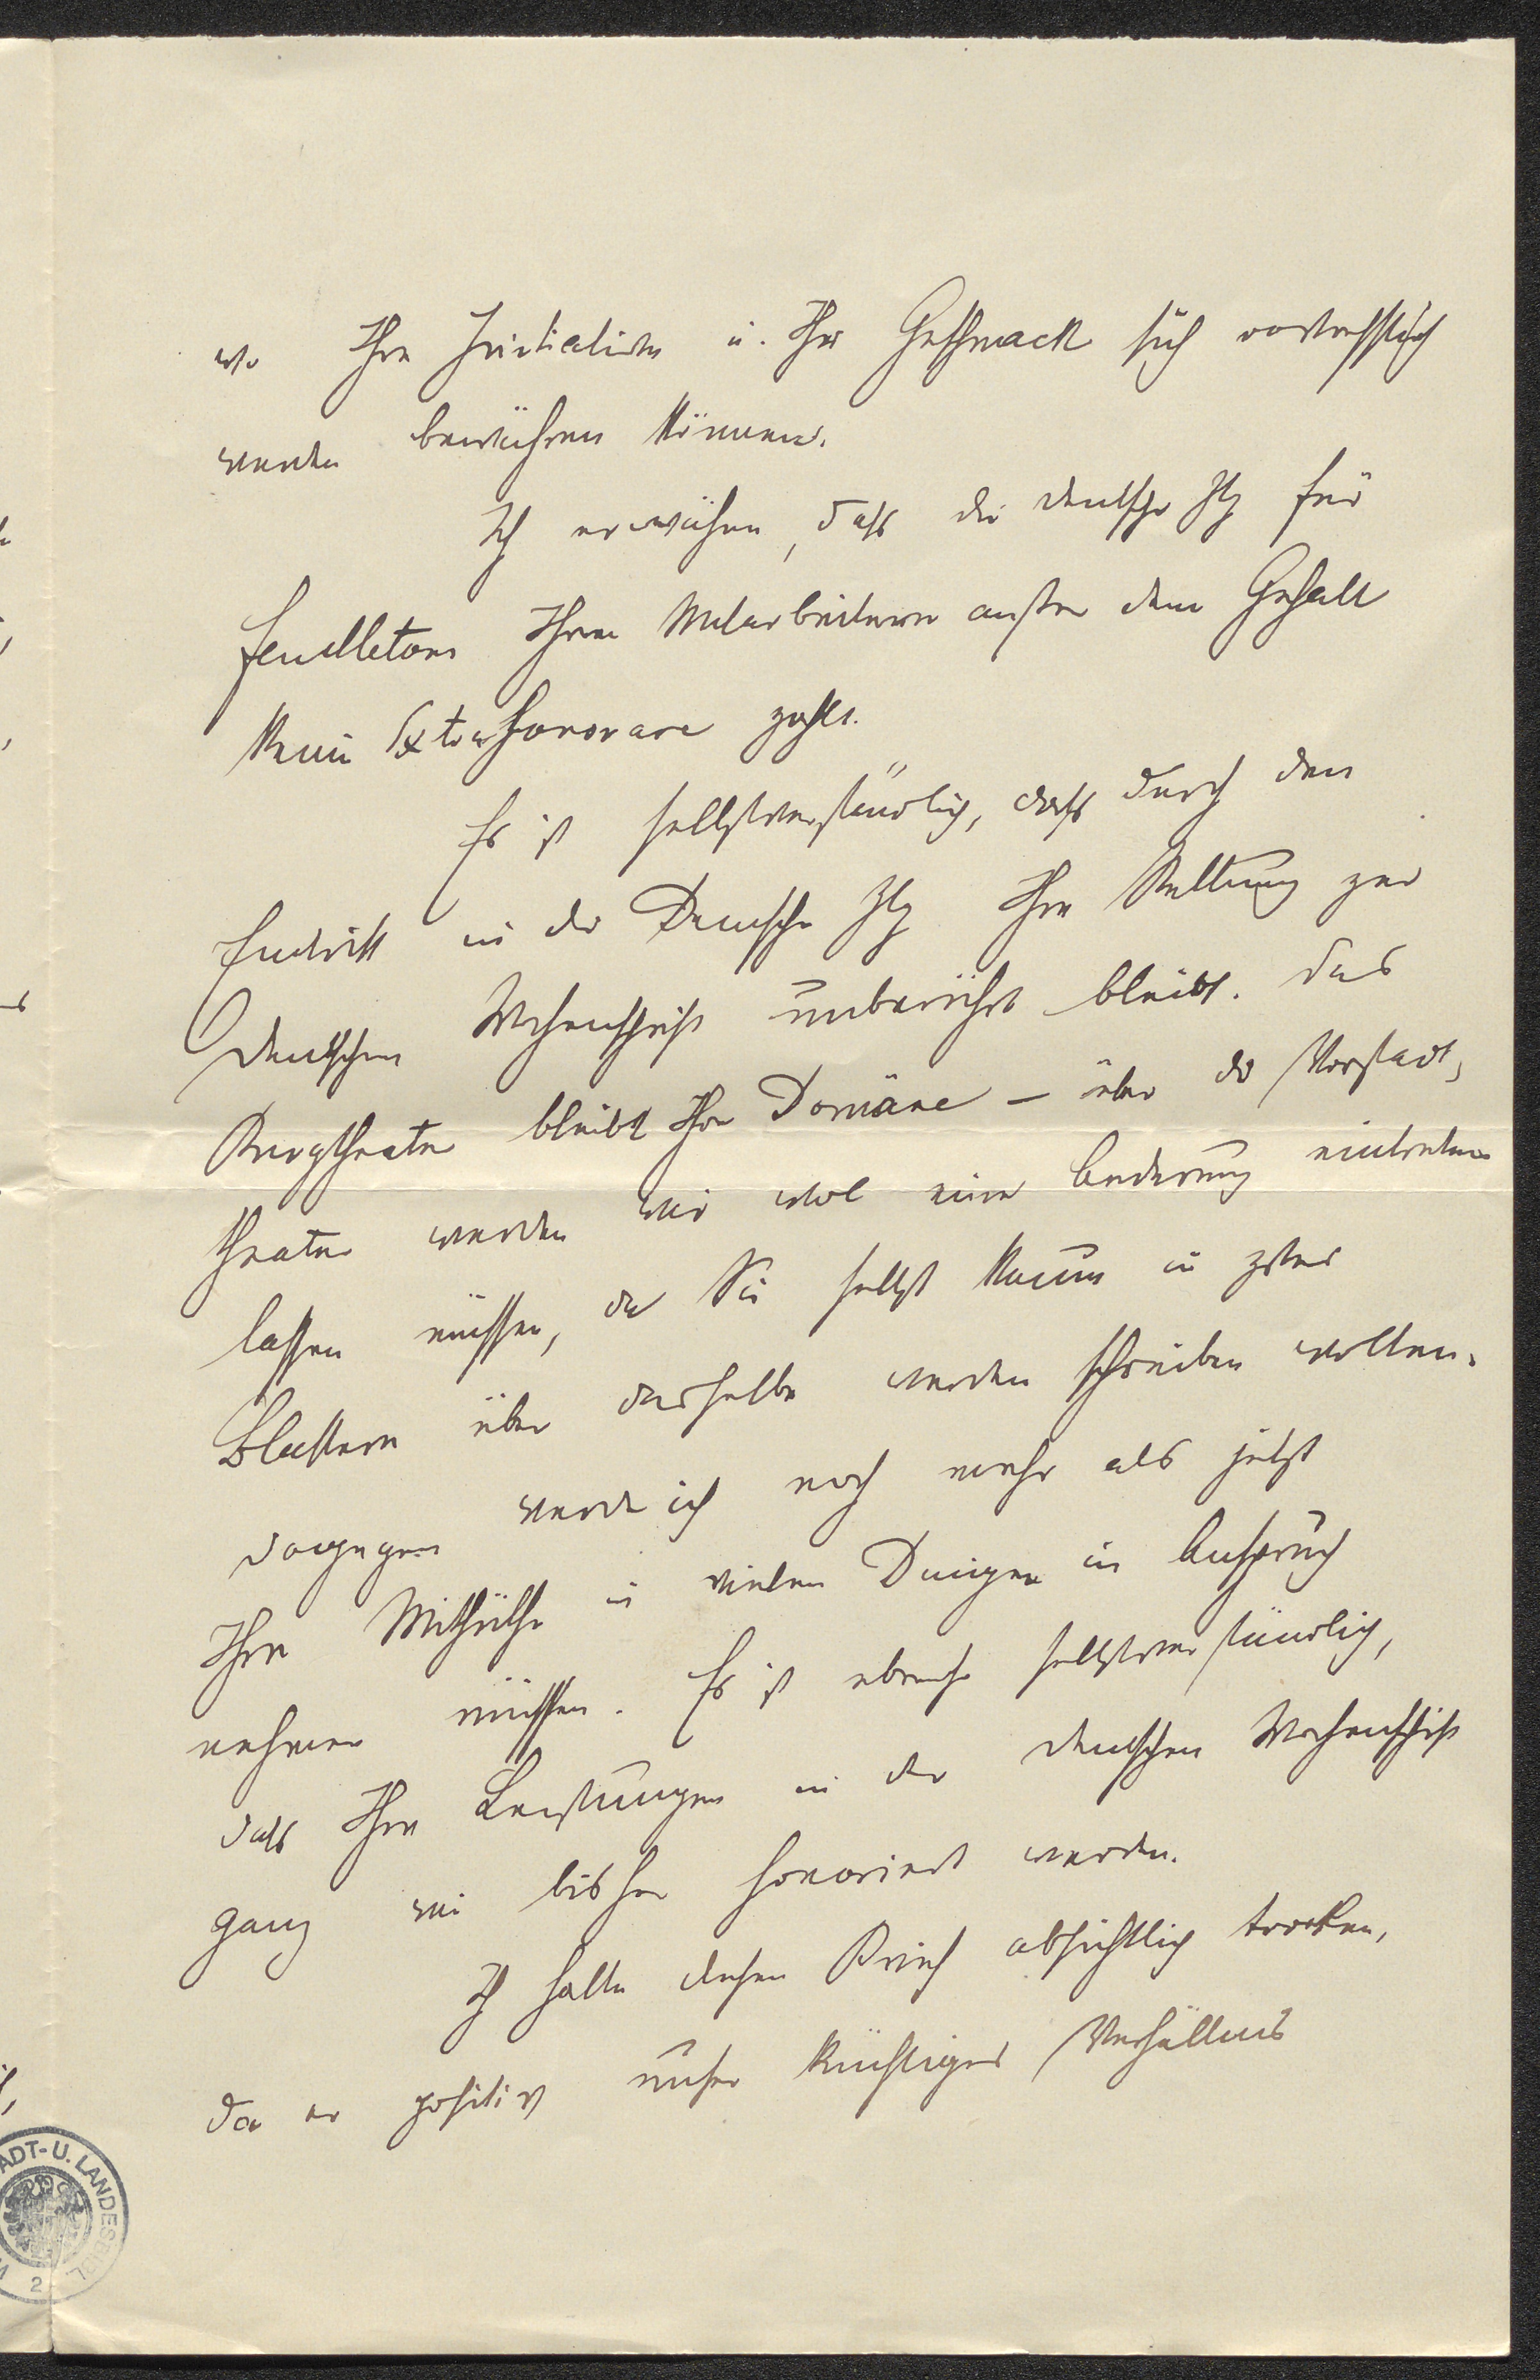 wo Ihre Initiative u. Ihr Geschmack sich vortrefflich
werden bewähren können.
Ich erwähne, daß die deutsche Ztg für
Feuilletons Ihren Mitarbeitern außer dem Gehalt
kein Extrahonorare zahlt.
Es ist selbstverständlich, daß durch den
Eintritt in die Deutsche Ztg Ihre Stellung zur
Deutschen Wochenschrift unberührt bleibt. Das
Burgtheater bleibt Ihre Domäne – über die Vorstadt-
theater werden wir wol eine Änderung eintreten
lassen müssen, da Sie selbst kaum in zwei
Blättern über dasselbe werden schreiben wollen.
Dagegen werde ich noch mehr als jetzt
Ihre Mithülfe in vielen Dingen in Anspruch
nehmen müssen. Es ist ebenso selbstverständlich,
daß Ihre Leistungen in der Deutschen Wochenschrift
ganz wie bisher honoriert werden.
Ich halte diesen Brief absichtlich trocken,
da er positiv unser künftiges Verhältnis
ADT- U. LANDESBIBL.
2